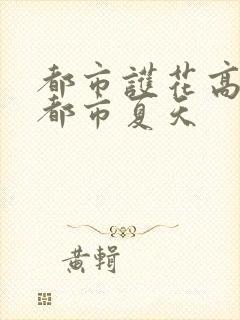 都市護花高
都市夏天
黃輯